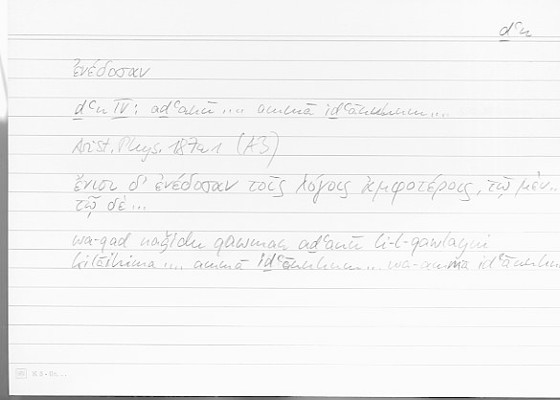 ḏʿn
ἐνέδοσαν
ḏʿn IV: aḏʿanū .... ammā iḏʿānuhum ...
Arist. Phys. 187a1 (A3)
ἔνιοι δ' ἐνέδοσαν τοῖς λόγοις ἀμφοτέροις, τῷ μὲν ..
τῷ δὲ ...
wa-qad naǧidu qawman aḏʿanū li-l-qawlayni
kilaihima .... ammā iḏʿānuhum ... wa-ammā iḏʿānuhum